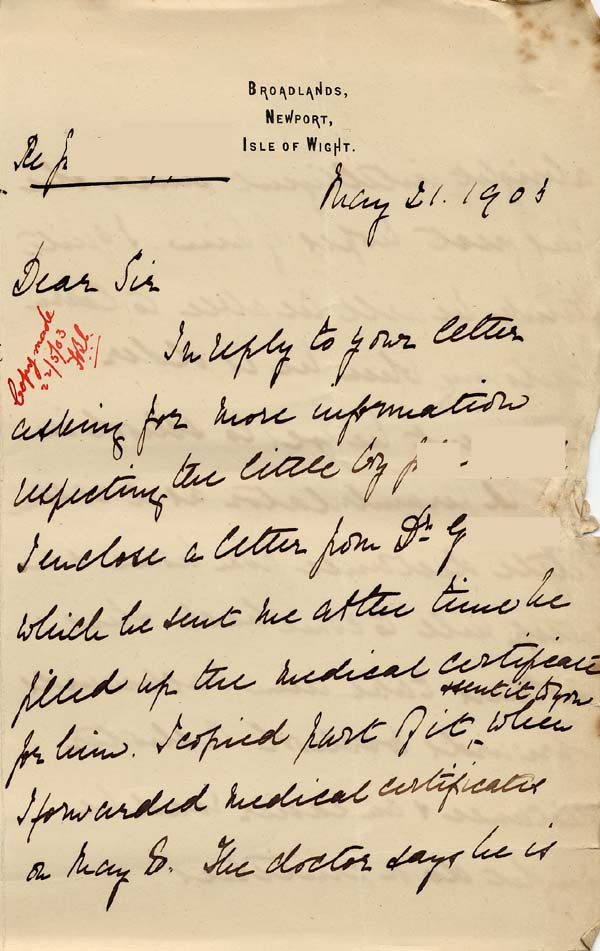 BROADLANDS,
NEWPORT,
ISLE OF WIGHT.
Re J
May 21. 1903
Dear Sir
copy made
22/5/03
In reply to your letter
asking for more information
respecting the little boy J
I enclose a letter from Dr G
which he sent me at the time he
filled up the medical certificate
& sent it to you
for him. I copied part of it, when
I forwarded medical certificate
on May 8. The doctor says he is